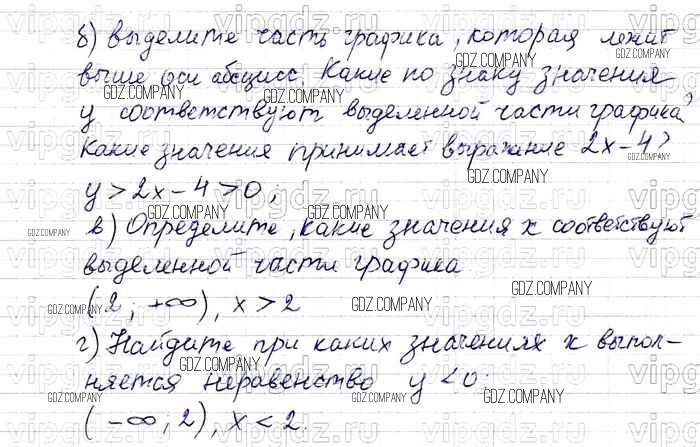 б) выделите часть графика, которая лежит
выше оси абсцисс. Какие по знаку значения
y соответствуют выделенной части графика?
Какие значения принимает выражение 2x-4?
y > 2x-4 > 0;
в) Определите, какие значения x соответствуют
выделенной части графика
(2; +∞), x > 2
г) Найдите при каких значениях x выпол-
няется неравенство y < 0.
(-∞; 2), x < 2.
vipgdz.ru
GDZ.COMPANY